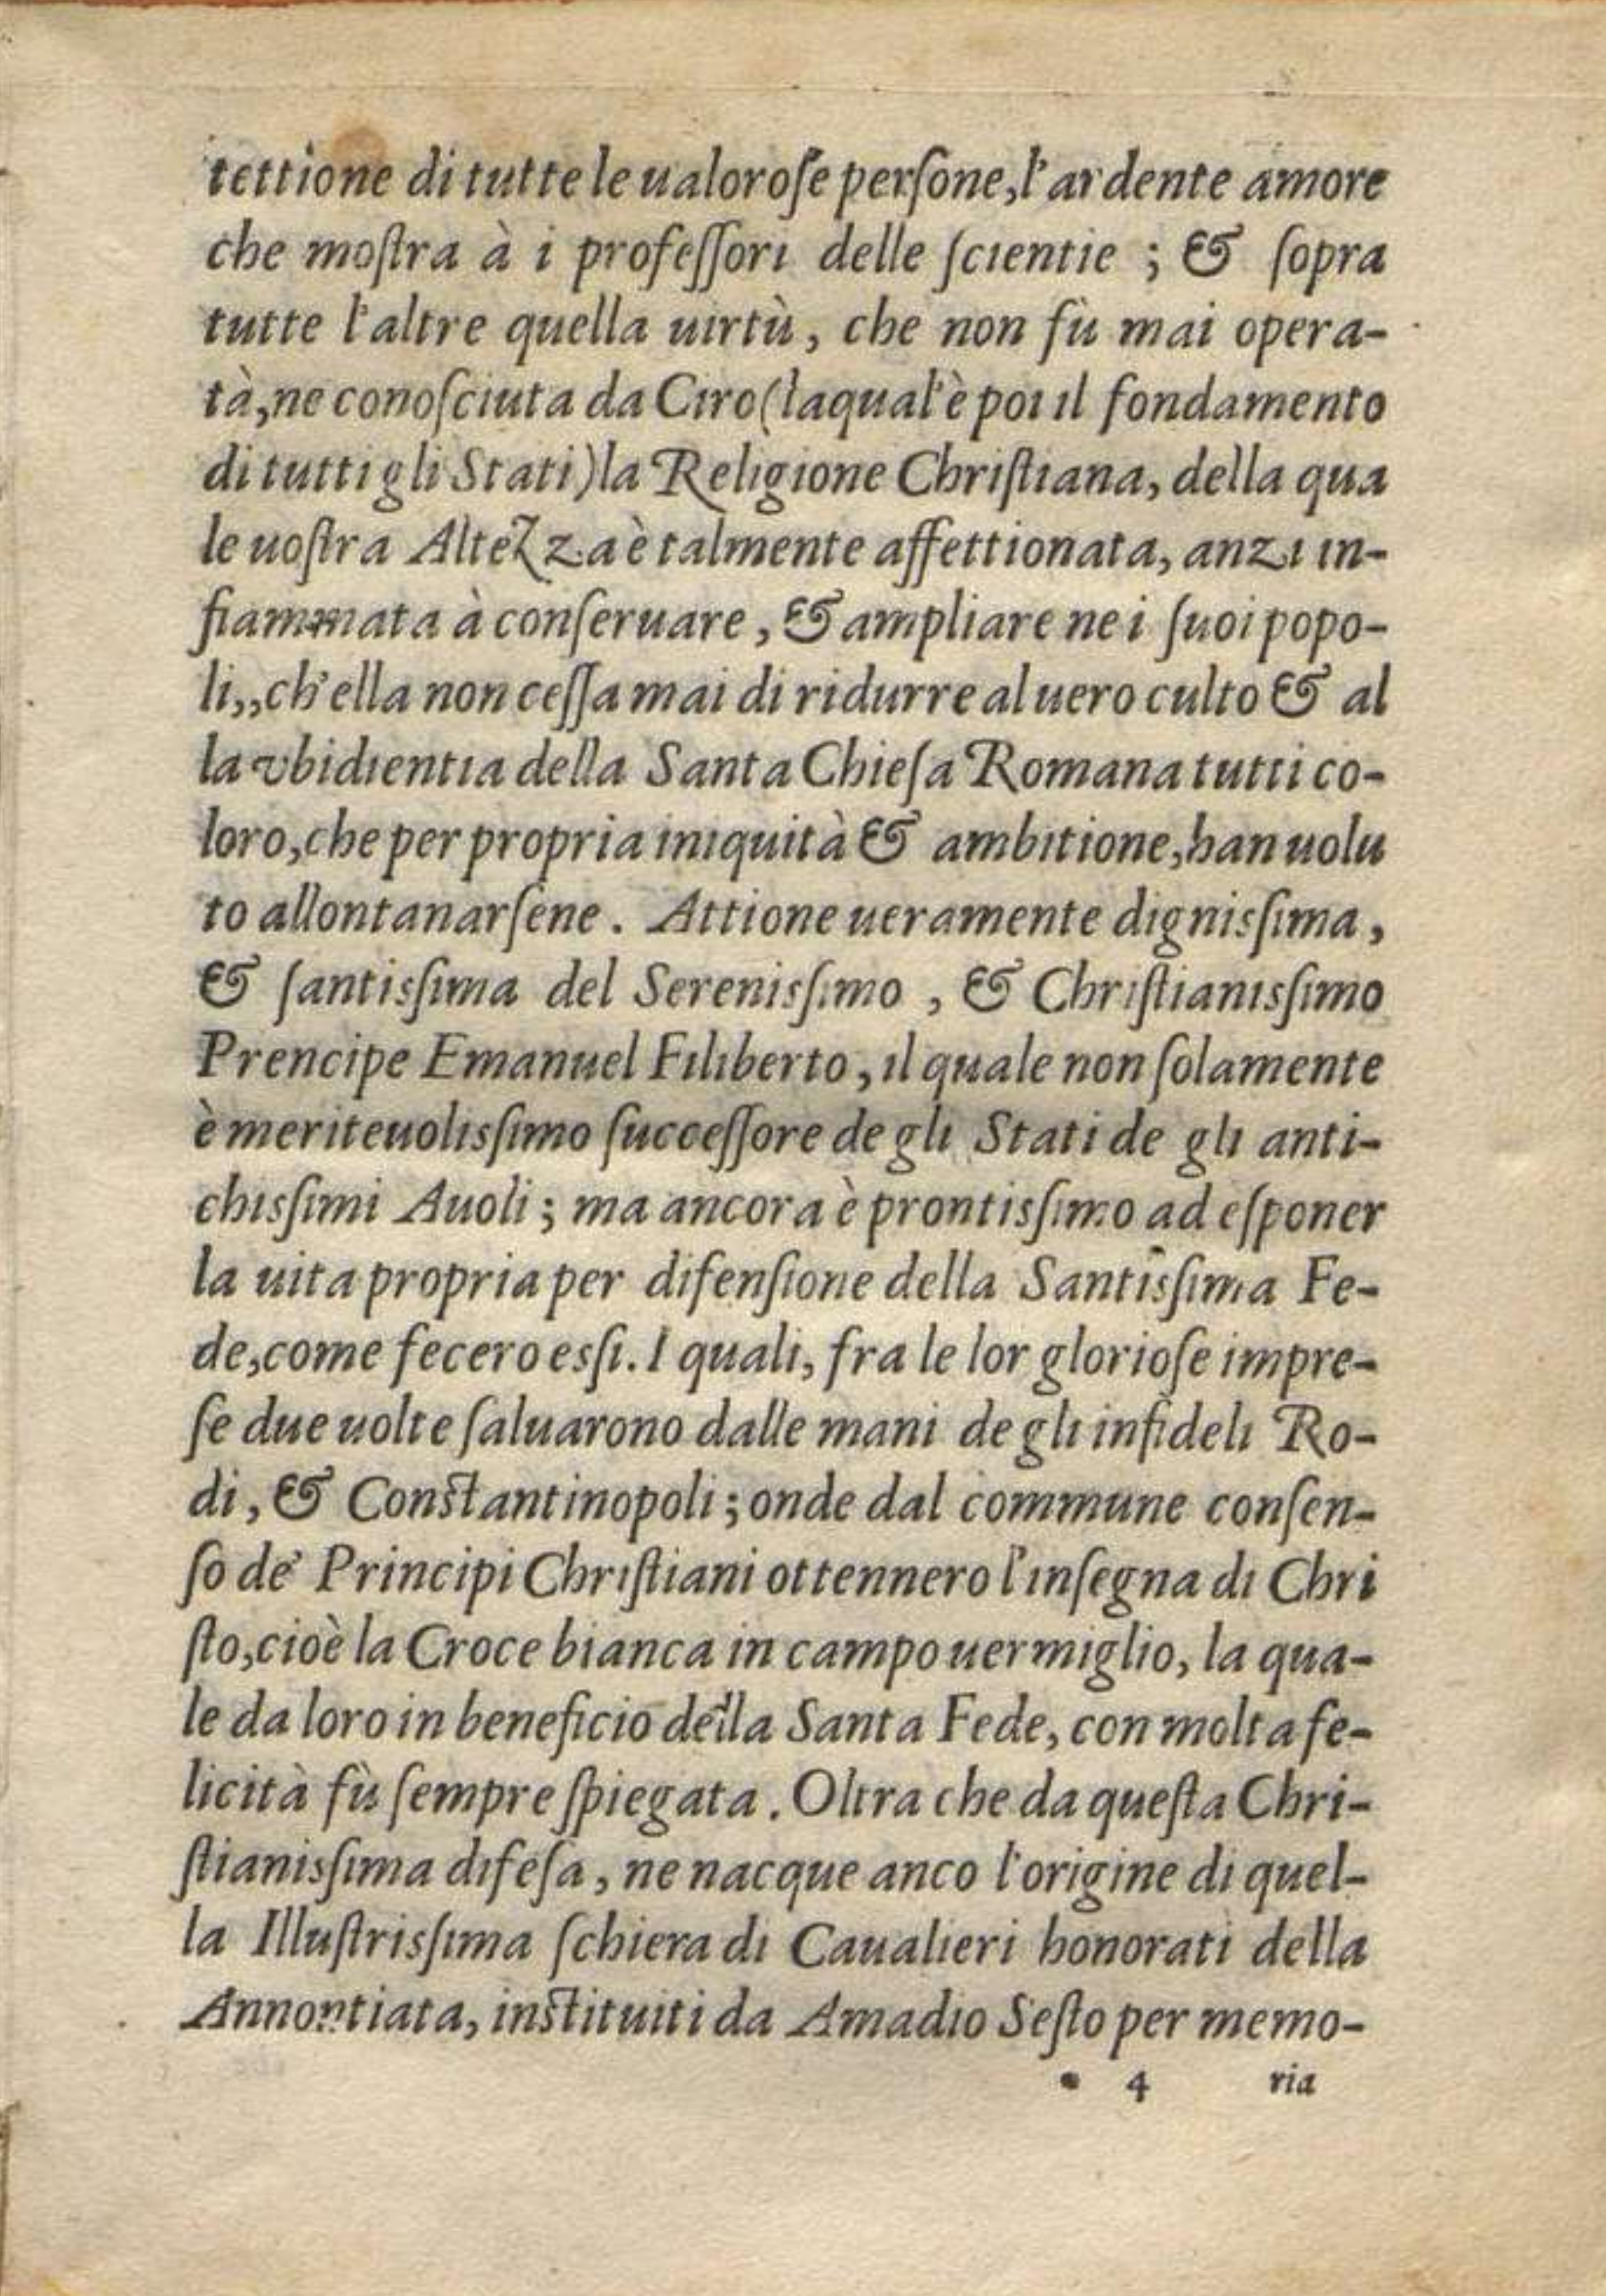 tettione di tutte le ualoroſe perſone, l'ardente amore
che moſtra à i profeſſori delle ſcientie ; & ſopra
tutte l'altre quella uirtù, che non fù mai opera-
tà, ne conoſciuta da Ciro (laqual'è poi il fondamento
di tutti gli Stati) la Religione Chriſtiana, della qua
le uoſtra Altezza è talmente affettionata, anzi in-
fiammata à conſeruare, & ampliare ne i ſuoi popo-
li,, ch'ella non ceſſa mai di ridurre al uero culto & al
la vbidientia della Santa Chieſa Romana tutti co-
loro, che per propria iniquità & ambitione, han uolu
to allontanarſene. Attione ueramente digniſsima,
& ſantiſsima del Sereniſsimo, & Chriſtianiſsimo
Prencipe Emanuel Filiberto, il quale non ſolamente
è meriteuoliſsimo ſucceſſore de gli Stati de gli anti-
chiſsimi Auoli; ma ancora è prontiſsimo ad eſponer
la uita propria per difenſione della Santiſsima Fe-
de, come fecero eſsi. I quali, fra le lor glorioſe impre-
ſe due uolte ſaluarono dalle mani de gli infideli Ro-
di, & Conſtantinopoli; onde dal commune conſen-
ſo de' Principi Chriſtiani ottennero l'inſegna di Chri
ſto, cioè la Croce bianca in campo uermiglio, la qua-
le da loro in beneficio della Santa Fede, con molta fe-
licità fù ſempre ſpiegata. Oltra che da queſta Chri-
ſtianiſsima difeſa, ne nacque anco l'origine di quel-
la Illuſtriſsima ſchiera di Caualieri honorati della
Annontiata, inſtituiti da Amadio Seſto per memo-
* 4 ria